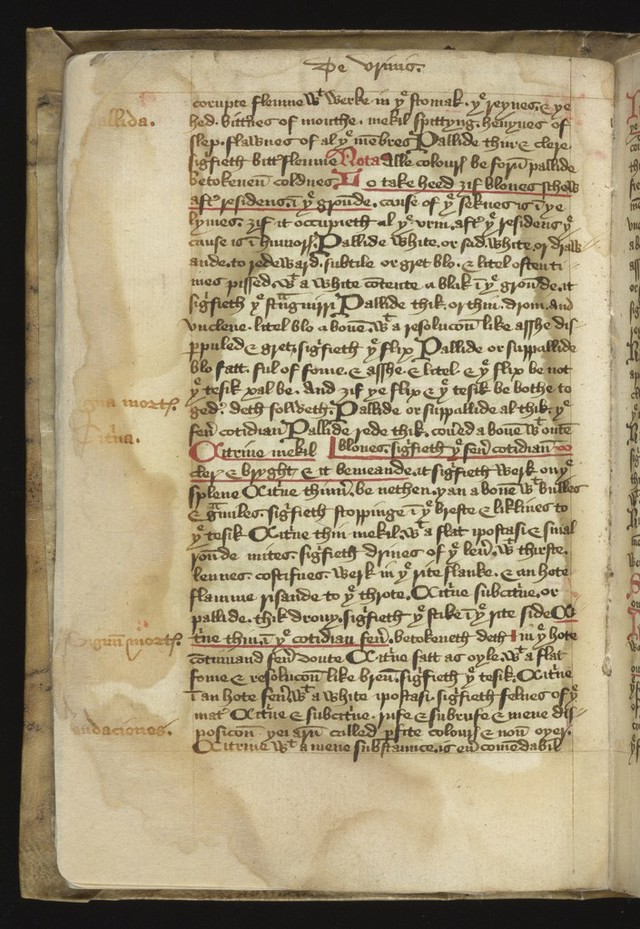 De Vrinis.
corupte flenme wt werke in ye stomak. ye reynes. & ye
allida.
hed. bittnes of mouthe. mekil spittyng. heuynes of
slep. flawnes of al ye mēbres Pallide thin & clere
sigfieth bitt flenme Nota alle colours be forn pallide
betokeneñ coldnes. Lo take heed zif blones schew
aftr residens. ī ye gronde. cause of ye seknes is ī ye
lymes. zif it occupieth al ye vrin. aftr ye residens ye
cause is ī humors. Pallide white. or sad white. or draw
ande. to redeward. subtile or gret blo. & litel often ti
mes pissed. wt a white cōtente a blik ī ye gronde. it
sigfieth ye Pallide thik. or thin. drom. and
vnclene. litel blo a bone. wt a resolucōn like asshe dis
ppuled & gret. sigfieth ye flix Pallide or suppallide
blo fatt. ful of fome. & asshe. & litel. & ye flix be not
ye tesik xal be. And zif ye flix & ye tesik be bothe to
mortis.
gedr. deth folweth. Pallide or suppallide al thik. ye
feur cotidian Pallide rede thik. coūed a bone wt
Citrina.
Citrine mekil blones. sigfieth ye feur cotidian
cler & bryght & it bemeande. it sigfieth werk on ye
splene Citrine thinnr. be nethen. yan a bone wt bulles
& gñules. sigfieth stoppinge ī ye breste & liklines to
ye tesik Citrine thin mekil. wt a flat ipostasi & smal
rōnde mites. sigfieth drines of ye leur. wt thirste.
lennes. costifnes. werk in ye rite flanke. & an hote
flawme risande to ye throte. Citrine subcitrine. or
pallide. thik drouy. sigfieth ye stike ī ye rite side Ci
Signum mortis.
trine thin. ī ye cotidian feur. betokeneth deth in ye hote
cōtinuand feur doute Citrine fatt as oyle. wt a flat
fome & resolucōn like bren. sigfieth ye tesik. Citrine
ī an hote feur. wt a white ipostasi. sigfieth felnes of ye
mat Citrine & subcitrine. rufe & subrufe & mene dis
posicōn yei arn called pfite colours & non oyer.
Citrine wt a mene substaunce. is eu comēdabil